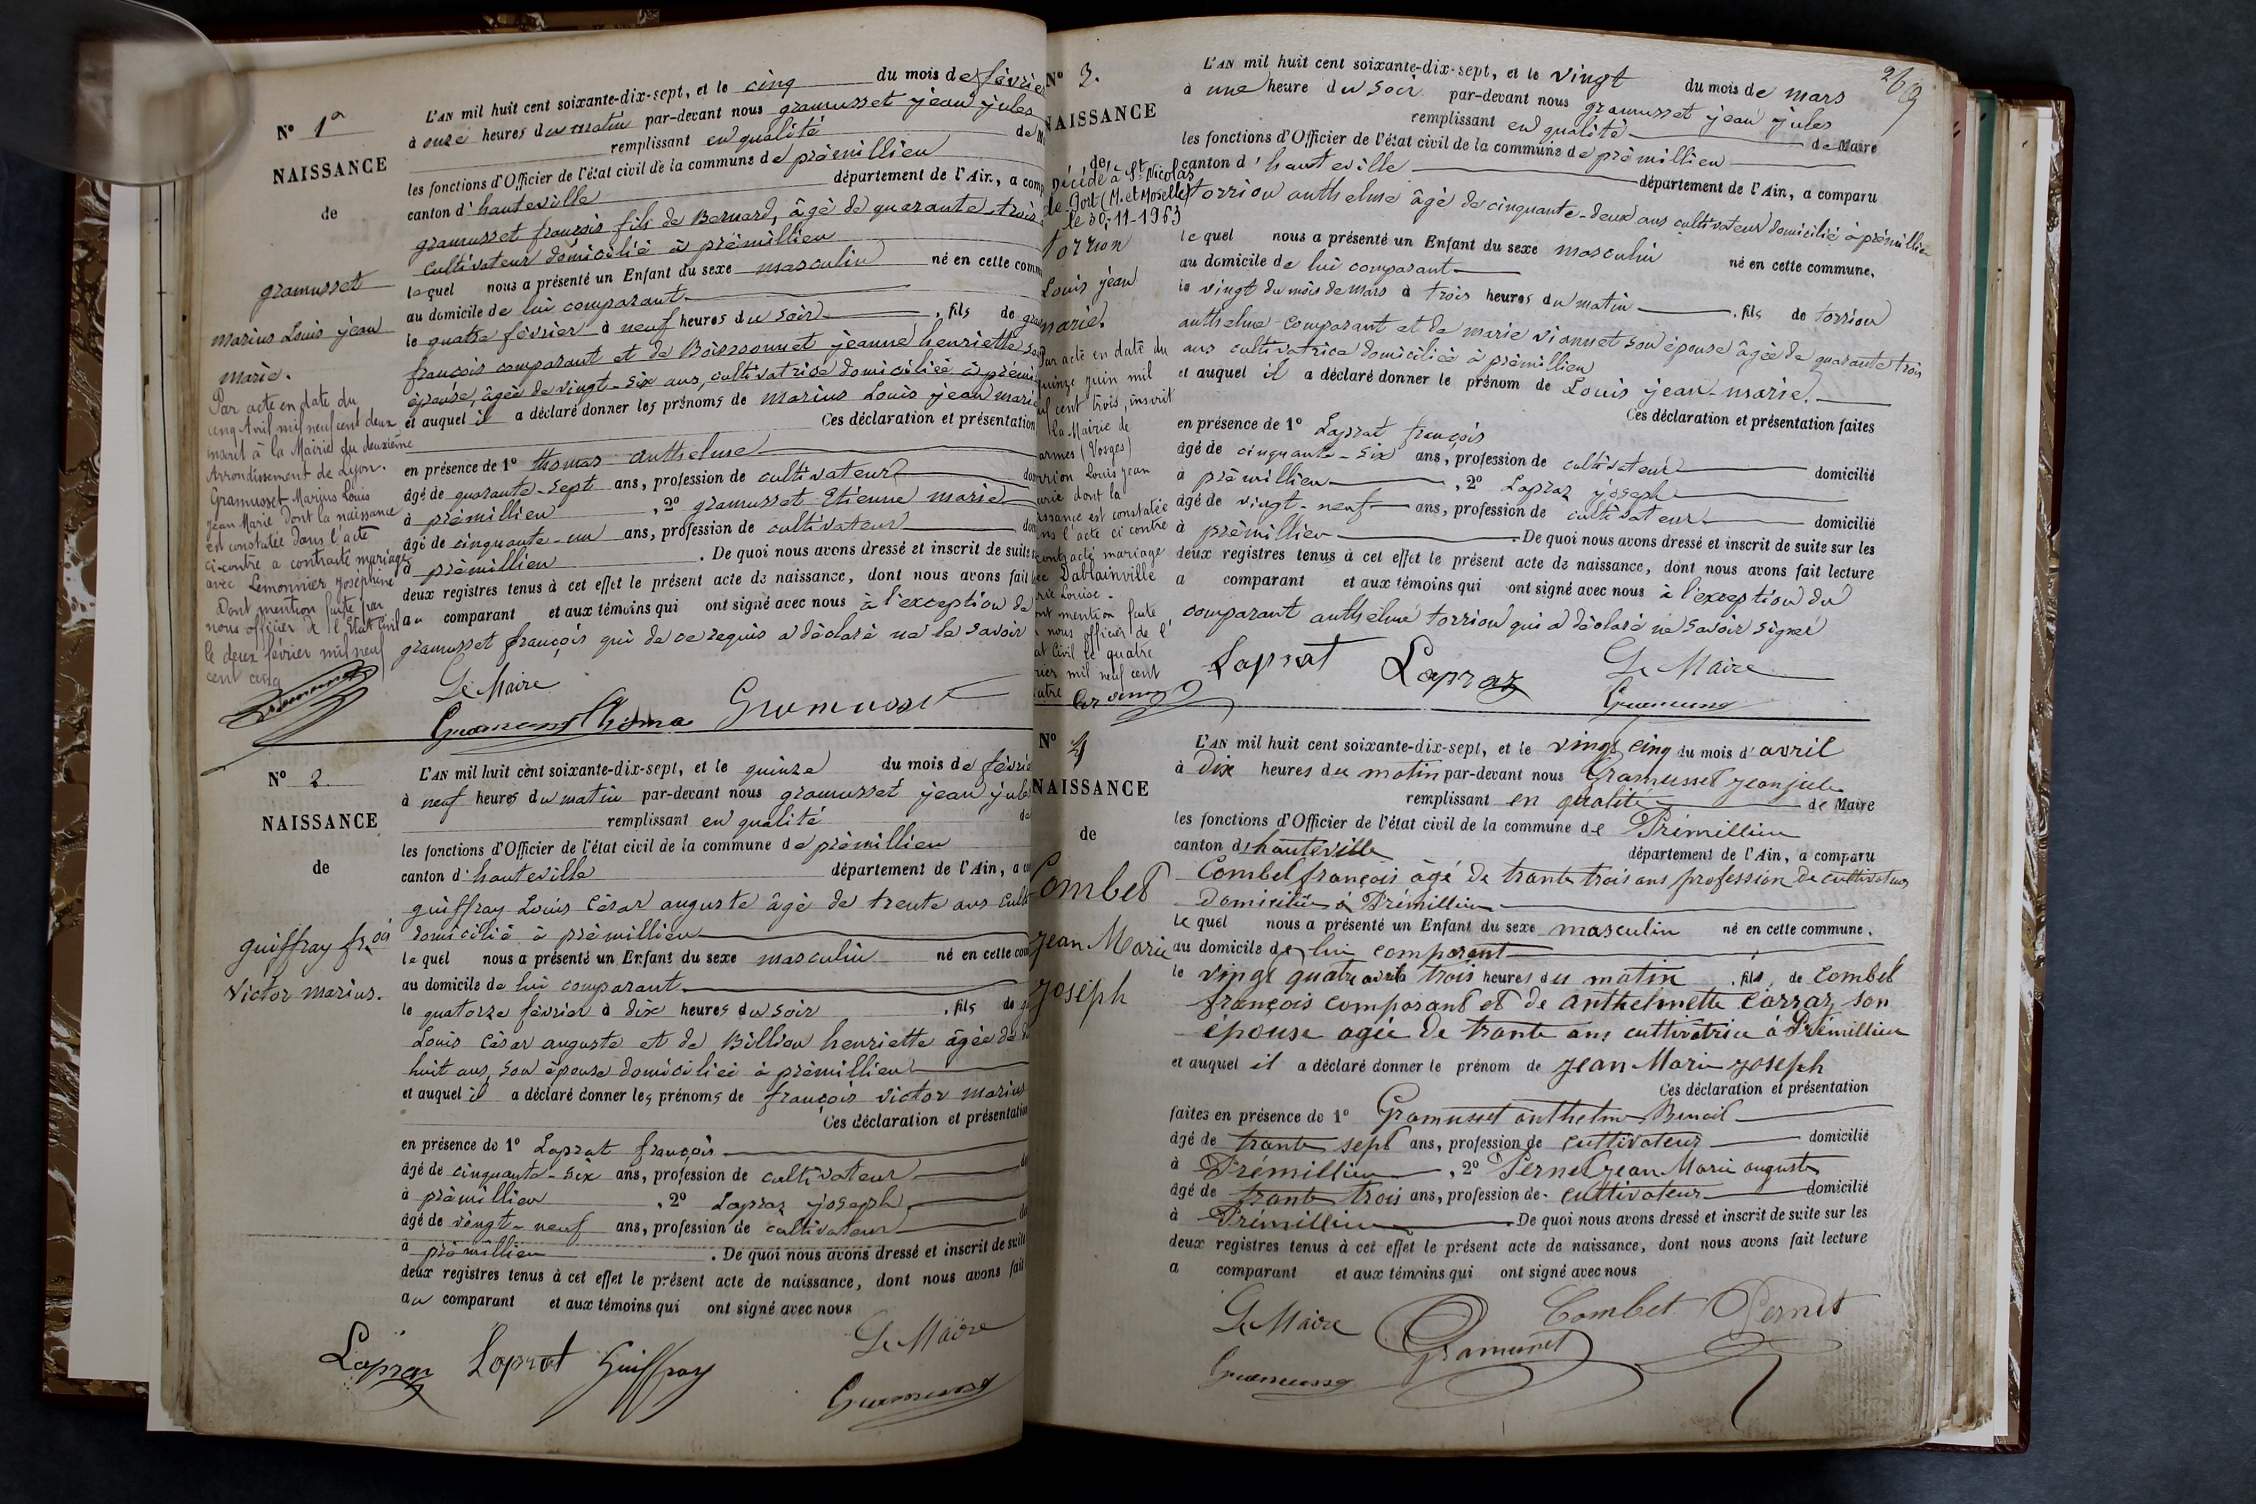 N° 1er
NAISSANCE
de
gramusset
marius Louis jean
marie.
Par acte en date du
cinq Avril mil neuf cent deux
inscrit à la Mairie du deuxième
Arrondissement de Lyon.
Gramusset Marius Louis
Jean Marie dont la naissance
est constatée dans l'acte
ci-contre a contracté mariage
avec Lemonnier Joséphine
Dont mention faite par
nous officier de l'Etat Civil
le deux février mil neuf
cent cinq
L'AN mil huit cent soixante-dix-sept, et le cinq du mois de février
à onze heures du matin par-devant nous gramusset jean jules
remplissant en qualité de
les fonctions d'Officier de l'état civil de la commune de prémillieu
canton d'hauteville département de l'Ain, a comp
gramusset françois fils de Bernard, âgé de quarante-trois
cultivateur domicilié à prémillieu
lequel nous a présenté un Enfant du sexe masculin né en cette comm
au domicile de lui comparant
le quatre février à neuf heures du soir, fils de gra
françois comparant et de Boissonnet jeanne henriette
épouse, âgée de vingt-six ans, cultivatrice domiciliée à prémi
et auquel il a déclaré donner les prénoms de marius Louis jean marie
Ces déclaration et présentation
en présence de 1° thomas anthelme
âgé de quarante-sept ans, profession de cultivateur dom
à prémillieu, 2° gramusset Etienne marie
âgé de cinquante-un ans, profession de cultivateur dom
à prémillieu. De quoi nous avons dressé et inscrit de suite
deux registres tenus à cet effet le présent acte de naissance, dont nous avons fait
au comparant et aux témoins qui ont signé avec nous à l'exception de
gramusset françois qui de ce requis a déclaré ne le savoir
Le Maire
Gramusset Thoma Gramusset
N° 2
NAISSANCE
de
guiffray frçois
Victor marius.
L'AN mil huit cent soixante-dix-sept, et le quinze du mois de févrie
à neuf heures du matin par-devant nous gramusset jean jule
remplissant en qualité de
les fonctions d'Officier de l'état civil de la commune de prémillieu
canton d'hauteville département de l'Ain, a co
guiffray Louis César auguste âgé de trente ans culti
domicilié à prémillieu
lequel nous a présenté un Enfant du sexe masculin né en cette com
au domicile de lui comparant
le quatorze février à dix heures du soir, fils de g
Louis César auguste et de Billion henriette âgée de
huit ans, son épouse domiciliée à prémillieu
et auquel il a déclaré donner les prénoms de françois victor marius
Ces déclaration et présentation
en présence de 1° Laprat françois
âgé de cinquante-six ans, profession de cultivateur do
à prémillieu, 2° Lapraz joseph
âgé de vingt-neuf ans, profession de cultivateur do
à prémillieu. De quoi nous avons dressé et inscrit de suite
deux registres tenus à cet effet le présent acte de naissance, dont nous avons fait
au comparant et aux témoins qui ont signé avec nous
Le Maire
Lapraz Laprat Guiffray
Gramusset
N° 3.
NAISSANCE
de
Décédé à St Nicolas
de Port (M. et Moselle)
le 30-11-1963
torrion
Louis jean
marie.
Par acte en date du
quinze juin mil
neuf cent trois, inscrit
la Mairie de
armes (Vosges)
orrion Louis Jean
arie dont la
issance est constatée
ans l'acte ci contre
contracté mariage
ec Dablainville
rie Louise.
ont mention faite
nous officier de l'
at Civil le quatre
rier mil neuf cent
atre
L'AN mil huit cent soixante-dix-sept, et le vingt du mois de mars
à une heure du soir par-devant nous gramusset jean jules
remplissant en qualité de Maire
les fonctions d'Officier de l'état civil de la commune de prémillieu
canton d'hauteville département de l'Ain, a comparu
torrion anthelme âgé de cinquante-deux ans cultivateur domicilié à prémillieu
lequel nous a présenté un Enfant du sexe masculin né en cette commune,
au domicile de lui comparant
le vingt du mois de mars à trois heures du matin, fils de torrion
anthelme comparant et de marie vionnet son épouse âgée de quarante trois
ans cultivatrice domiciliée à prémillieu
et auquel il a déclaré donner le prénom de Louis jean-marie.
Ces déclaration et présentation faites
en présence de 1° Laprat françois
âgé de cinquante-six ans, profession de cultivateur domicilié
à prémillieu, 2° Lapraz joseph
âgé de vingt-neuf ans, profession de cultivateur domicilié
à prémillieu. De quoi nous avons dressé et inscrit de suite sur les
deux registres tenus à cet effet le présent acte de naissance, dont nous avons fait lecture
a comparant et aux témoins qui ont signé avec nous à l'exception du
comparant anthelme torrion qui a déclaré ne savoir signer
Laprat Lapraz Le Maire
Gramusset
N° 4
NAISSANCE
de
Combet
Jean Marie
Joseph
L'AN mil huit cent soixante-dix-sept, et le vingt cinq du mois d'avril
à Dix heures du matin par-devant nous Gramusset jean jules
remplissant en qualité de Maire
les fonctions d'Officier de l'état civil de la commune de Prémillieu
canton d'hauteville département de l'Ain, a comparu
Combet françois âgé de trante trois ans profession de cultivateur
domicilié à Prémillieu
lequel nous a présenté un Enfant du sexe masculin né en cette commune,
au domicile de lui comparant
le vingt quatre avril à trois heures du matin, fils de Combet
françois comparant et de anthelmette Carraz son
épouse agée de trante ans cultivatrice à Prémillieu
et auquel il a déclaré donner le prénom de jean Marie joseph
Ces déclaration et présentation
faites en présence de 1° Gramusset anthelme Benoit
âgé de trante sept ans, profession de cultivateur domicilié
à Prémillieu, 2° Pernet jean Marie auguste
âgé de trante trois ans, profession de cultivateur domicilié
à Prémillieu. De quoi nous avons dressé et inscrit de suite sur les
deux registres tenus à cet effet le présent acte de naissance, dont nous avons fait lecture
a comparant et aux témoins qui ont signé avec nous
Le Maire Gramusset Combet Pernet
Gramusset